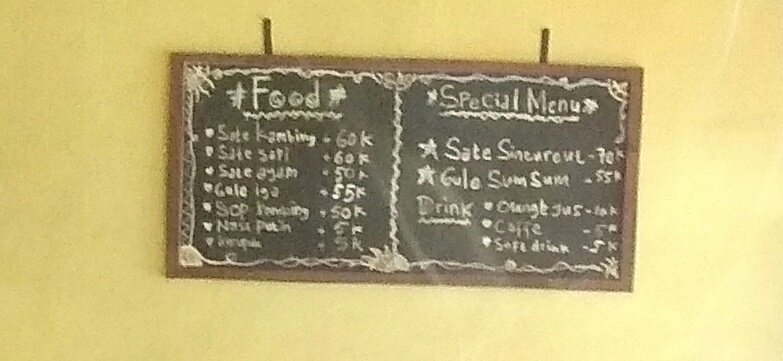 #Food#
Sate kambing - 60K
Sate sapi - 60K
Sate ayam - 50K
Gule iga - 55K
SOP kambing - 50K
Nasi putih - 5K
- 5K
*Special Menu*
Sate Sinereut - 70K
Gule Sum Sum - 55K
Drink
Orange Jus - 10K
Coffe - 5K
Soft drink - 5K